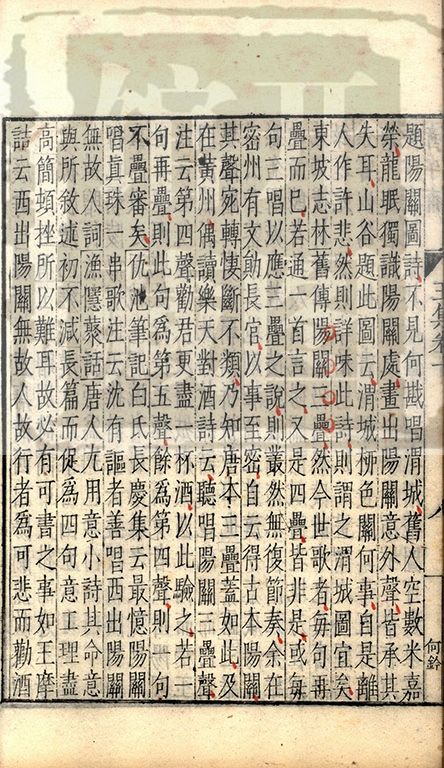 題陽關圖詩不見何戡唱渭城舊人空數米嘉
榮龍眠獨識陽關處畫出陽關意外聲皆承其
失耳山谷題此圖云渭城柳色關何事自是離
人作許悲然則詳味此詩則謂之渭城圖宜矣
東坡志林舊傳陽關三疊然今世歌者每句再
疊而已若通一首言之又是四疊皆非是或每
句三唱以應三疊之說則叢然無復節奏余在
密州有文勛長官以事至密自云得古本陽關
其聲宛轉悽斷不類乃知唐本三疊葢如此及
在黃州偶讀樂天對酒詩云聽唱陽關三疊聲
注云第四聲勸君更盡一杯酒以此驗之若一
句再疊則此句為第五聲餘為第四聲則一句
不疊審矣仇池筆記白氏長慶集云最憶陽關
唱真珠一串歌注云沈有謳者善唱西出陽關
無故人詞漁隱藂話唐人尤用意小詩其命意
與所敘述初不減長篇而促為四句意工理盡
高簡頓挫所以難耳故必有可書之事如王摩
詰云西出陽關無故人故行者為可悲而勸酒
何鈐